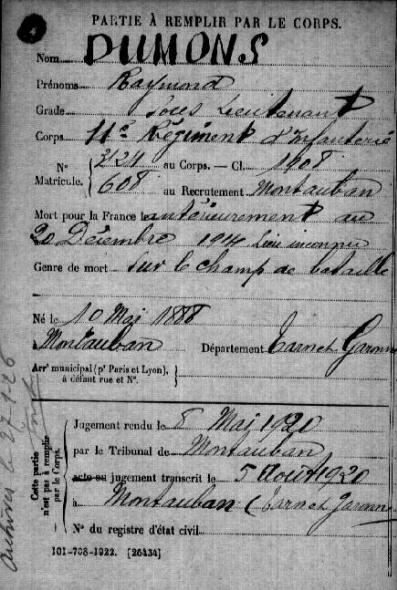 PARTIE À REMPLIR PAR LE CORPS.
Nom DUMONS
Prénoms Raymond
Grade Sous Lieutenant
Corps 11e Régiment d'Infanterie
N° 2124 au Corps. — Cl. 1908
Matricule. 608 au Recrutement Montauban
Mort pour la France le antérieurement au
20 Décembre 1914 Lieu inconnu
Genre de mort sur le champ de bataille
Né le 10 Mai 1888
Montauban Département Tarn et Garonne
Arrt municipal (pr Paris et Lyon),
à défaut rue et N°.
Cette partie
n'est pas à remplir
par le Corps.
Jugement rendu le 8 Mai 1920
par le Tribunal de Montauban
acte ou jugement transcrit le 5 Août 1920
à Montauban (Tarn et Garonne
N° du registre d'état civil
101-708-1922. [26434]
Archives le